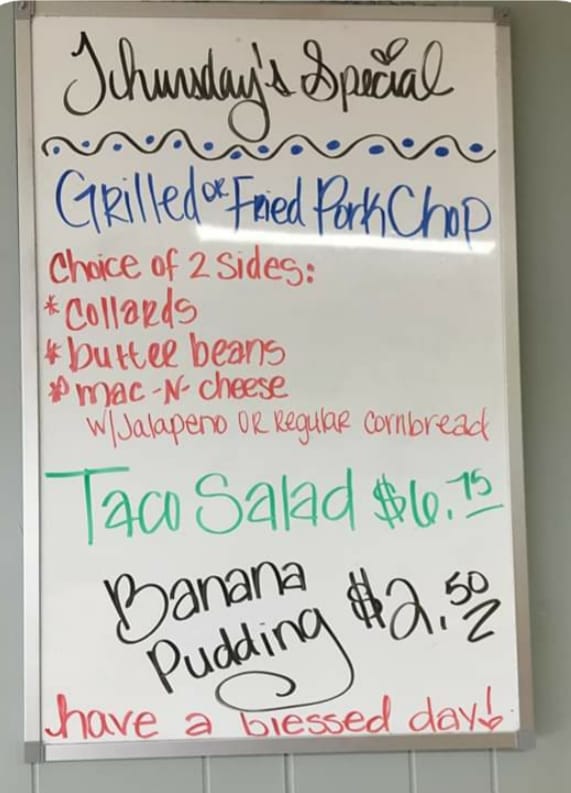 Thursday's Special
Grilled or Fried Pork Chop
Choice of 2 Sides:
* Collards
* butter beans
* mac -N- cheese
w/Jalapeno OR Regular Cornbread
Taco Salad $6.75
Banana
Pudding $2.50
have a blessed day!